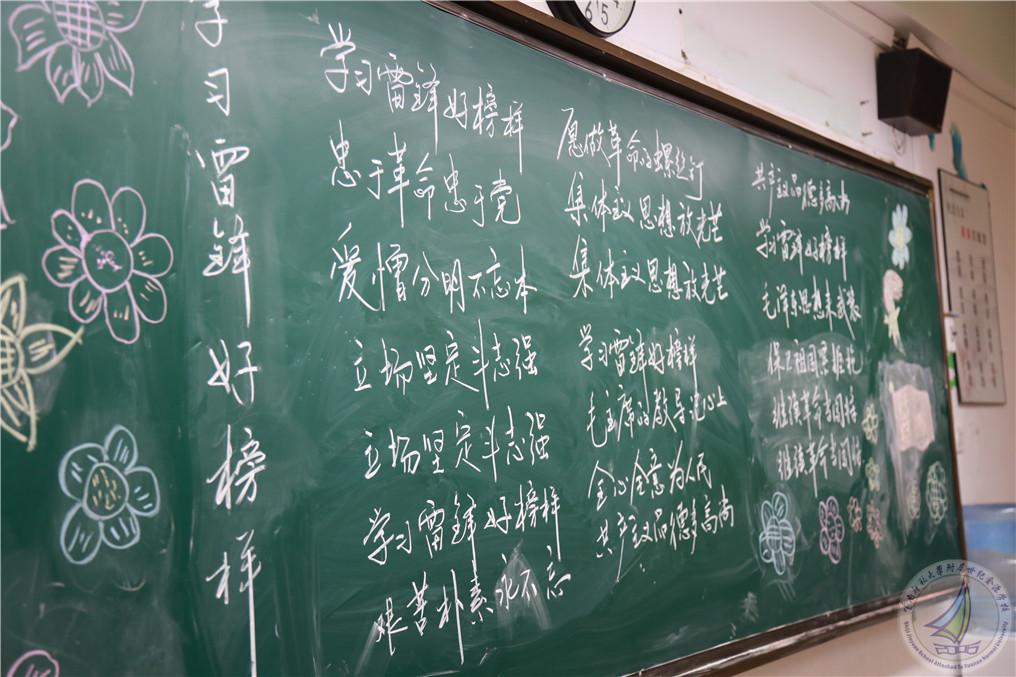 学习雷锋好榜样
学习雷锋好榜样
忠于革命忠于党
爱憎分明不忘本
立场坚定斗志强
立场坚定斗志强
学习雷锋好榜样
艰苦朴素永不忘
愿做革命的螺丝钉
集体主义思想放光芒
集体主义思想放光芒
学习雷锋好榜样
毛主席的教导记心上
全心全意为人民
共产主义品德多高尚
共产主义品德多高尚
学习雷锋好榜样
毛泽东思想来武装
保卫祖国紧握枪
继续革命当闯将
继续革命当闯将
6 5
云南师范大学附属世纪金源学校
Shiji Jinyuan School Attached To Yunnan Normal University